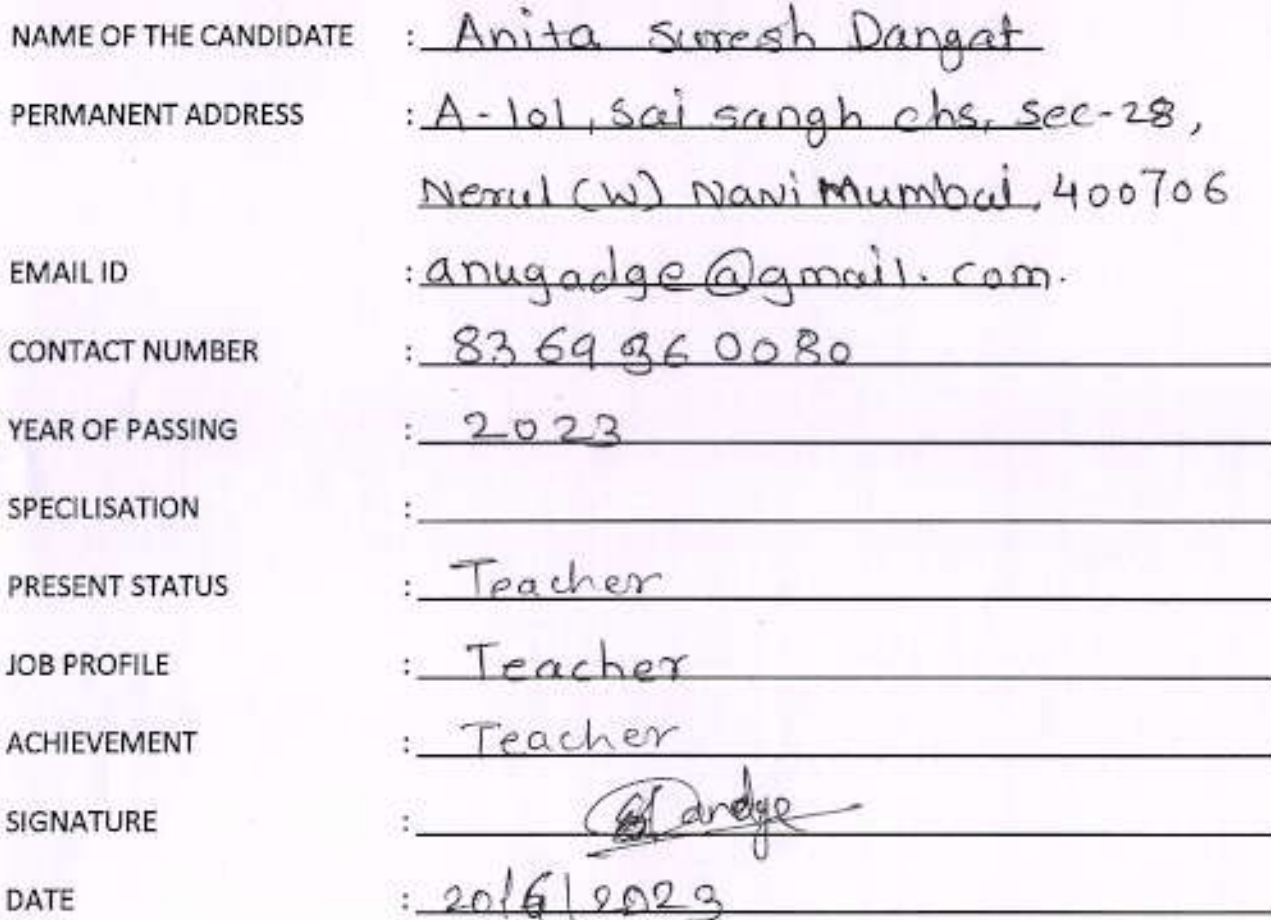 NAME OF THE CANDIDATE : Anita Suresh Dangat
PERMANENT ADDRESS : A-101, Sai sangh chs, Sec-28,
Nerul (W) Navi Mumbai, 400706
EMAIL ID : anugadge@gmail.com.
CONTACT NUMBER : 8369360080
YEAR OF PASSING : 2023
SPECILISATION :
PRESENT STATUS : Teacher
JOB PROFILE : Teacher
ACHIEVEMENT : Teacher
SIGNATURE :
DATE : 20/6/2023